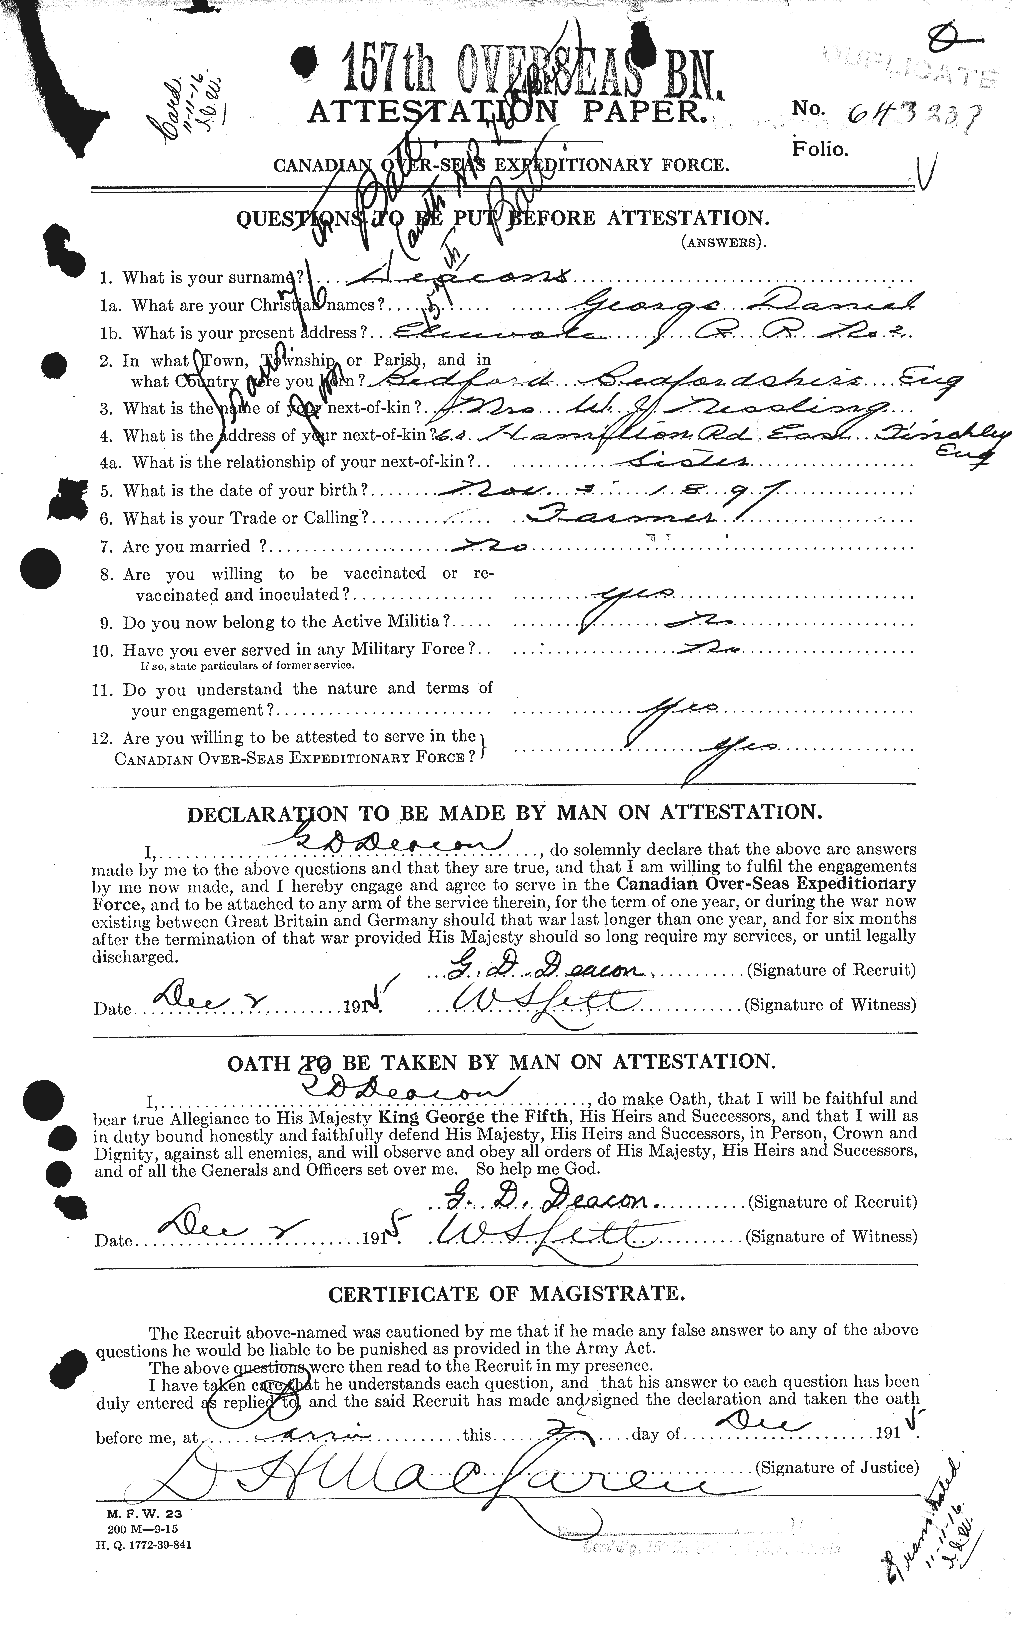 157th OVERSEAS BN.
DUPLICATE
ATTESTATION PAPER.
No. 643237
Folio.
CANADIAN OVER-SEAS EXPEDITIONARY FORCE.
Card
11-11-16.
QUESTIONS TO BE PUT BEFORE ATTESTATION.
(ANSWERS).
1. What is your surname? Deacons
1a. What are your Christian names? George Daniel
1b. What is your present address? Elmvale R. R. No. 2.
2. In what Town, Township or Parish, and in
what Country were you born? Bedford Bedfordshire Eng
3. What is the name of your next-of-kin? Mrs W J Nessling
4. What is the address of your next-of-kin? Hamilton Rd East Finchley
Eng
4a. What is the relationship of your next-of-kin? Sister
5. What is the date of your birth? Nov. 3 1897
6. What is your Trade or Calling? Farmer
7. Are you married ? No
8. Are you willing to be vaccinated or re-
vaccinated and inoculated? Yes
9. Do you now belong to the Active Militia? No
10. Have you ever served in any Military Force? No
If so, state particulars of former service.
11. Do you understand the nature and terms of
your engagement? Yes
12. Are you willing to be attested to serve in the
CANADIAN OVER-SEAS EXPEDITIONARY FORCE? Yes
Trans from
76th Batt
to 157th Batt
DECLARATION TO BE MADE BY MAN ON ATTESTATION.
I, G D Deacon, do solemnly declare that the above are answers
made by me to the above questions and that they are true, and that I am willing to fulfil the engagements
by me now made, and I hereby engage and agree to serve in the Canadian Over-Seas Expeditionary
Force, and to be attached to any arm of the service therein, for the term of one year, or during the war now
existing between Great Britain and Germany should that war last longer than one year, and for six months
after the termination of that war provided His Majesty should so long require my services, or until legally
discharged.
G. D. Deacon. (Signature of Recruit)
Date Dec 2 1915. (Signature of Witness)
OATH TO BE TAKEN BY MAN ON ATTESTATION.
I, G D Deacon, do make Oath, that I will be faithful and
bear true Allegiance to His Majesty King George the Fifth, His Heirs and Successors, and that I will as
in duty bound honestly and faithfully defend His Majesty, His Heirs and Successors, in Person, Crown and
Dignity, against all enemies, and will observe and obey all orders of His Majesty, His Heirs and Successors,
and of all the Generals and Officers set over me. So help me God.
G. D. Deacon. (Signature of Recruit)
Date Dec 2 1915. (Signature of Witness)
CERTIFICATE OF MAGISTRATE.
The Recruit above-named was cautioned by me that if he made any false answer to any of the above
questions he would be liable to be punished as provided in the Army Act.
The above questions were then read to the Recruit in my presence.
I have taken care that he understands each question, and that his answer to each question has been
duly entered as replied to, and the said Recruit has made and signed the declaration and taken the oath
before me, at Barrie this 2 day of Dec 1915.
D H MacLaren (Signature of Justice)
M. F. W. 23
200 M—9-15
H. Q. 1772-39-841
Translated
11-11-16.